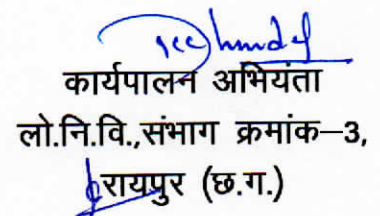 कार्यपालन अभियंता
लो.नि.वि.,संभाग क्रमांक–3,
रायपुर (छ.ग.)